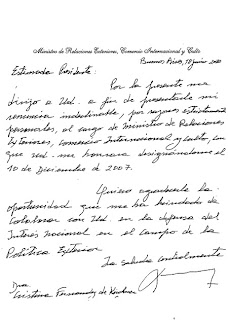 Ministro de Relaciones Exteriores, Comercio Internacional y Culto
Buenos Aires, 18 junio 2010
Estimada Presidente:
Por la presente me
dirijo a Ud. a fin de presentarle mi
renuncia indeclinable, por razones estrictamente
personales, al cargo de Ministro de Relaciones
Exteriores, Comercio Internacional y Culto, con
que Ud. me honrara designándome el
10 de Diciembre de 2007.
Quiero agradecerle la
oportunidad que me ha brindado de
colaborar con Ud en la defensa del
Interés nacional en el campo de la
Política Exterior
La saluda cordialmente
Dra
Cristina Fernandez de Kirchner